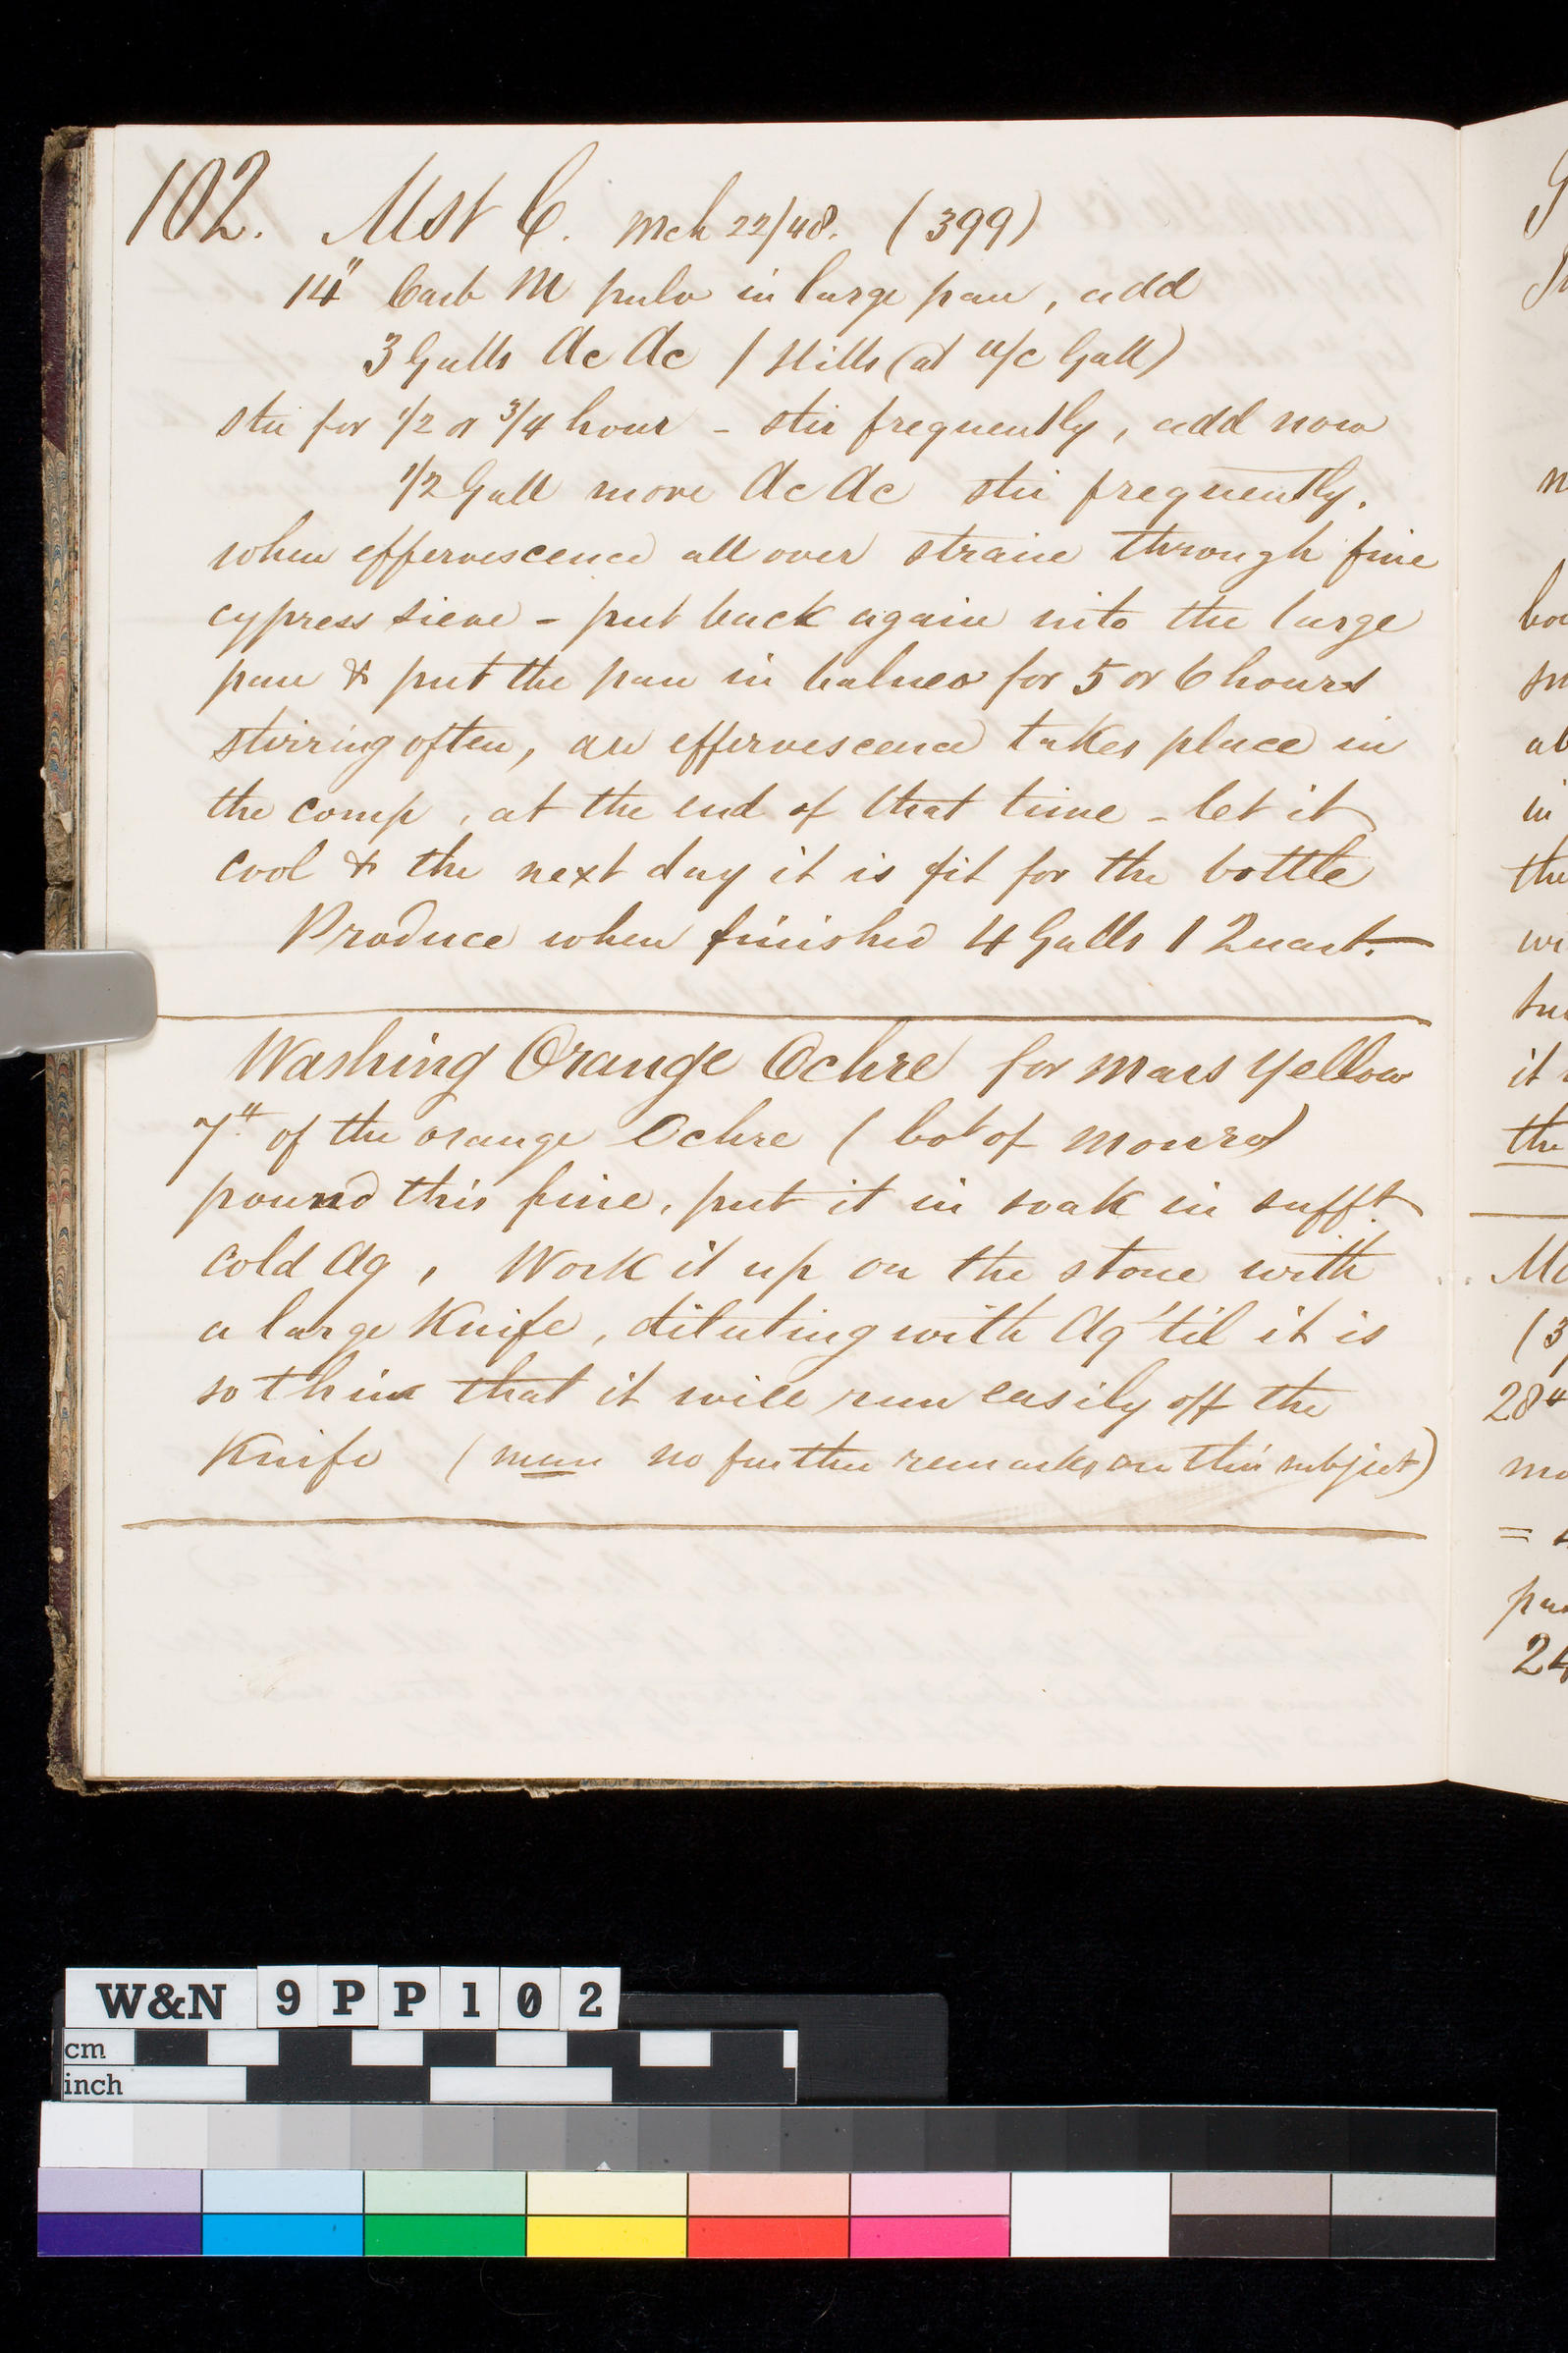 102. Mst C. Mch 22/48. (399)
14" Carb M pulv in large pan, add
3 Galls Ac Ac / Stills (at u/c Gall)
stir for 1/2 or 3/4 hour - stir frequently, add now
1/2 Gall more Ac Ac stir frequently.
when effervescence all over strain through fine
cypress sieve - put back again into the large
pan & put the pan in balneo for 5 or 6 hours
stirring often, an effervescence takes place in
the comp, at the end of that time - let it
cool & the next day it is fit for the bottle
Produce when finished 4 Galls 1 Quart.
Washing Orange Ochre for Mars Yellow
7" of the orange Ochre (bot of
pound this fine, put it in soak in sufft
cold Aq, Work it up on the stone with
a large Knife, diluting with Aq 'til it is
so thin that it will run easily off the
Knife (mem no further remarks on this subject)
n
bo
su
ab
in
the
wi
it
the
(3
28"
mo
=
24
W&N 9PP102
cm
inch